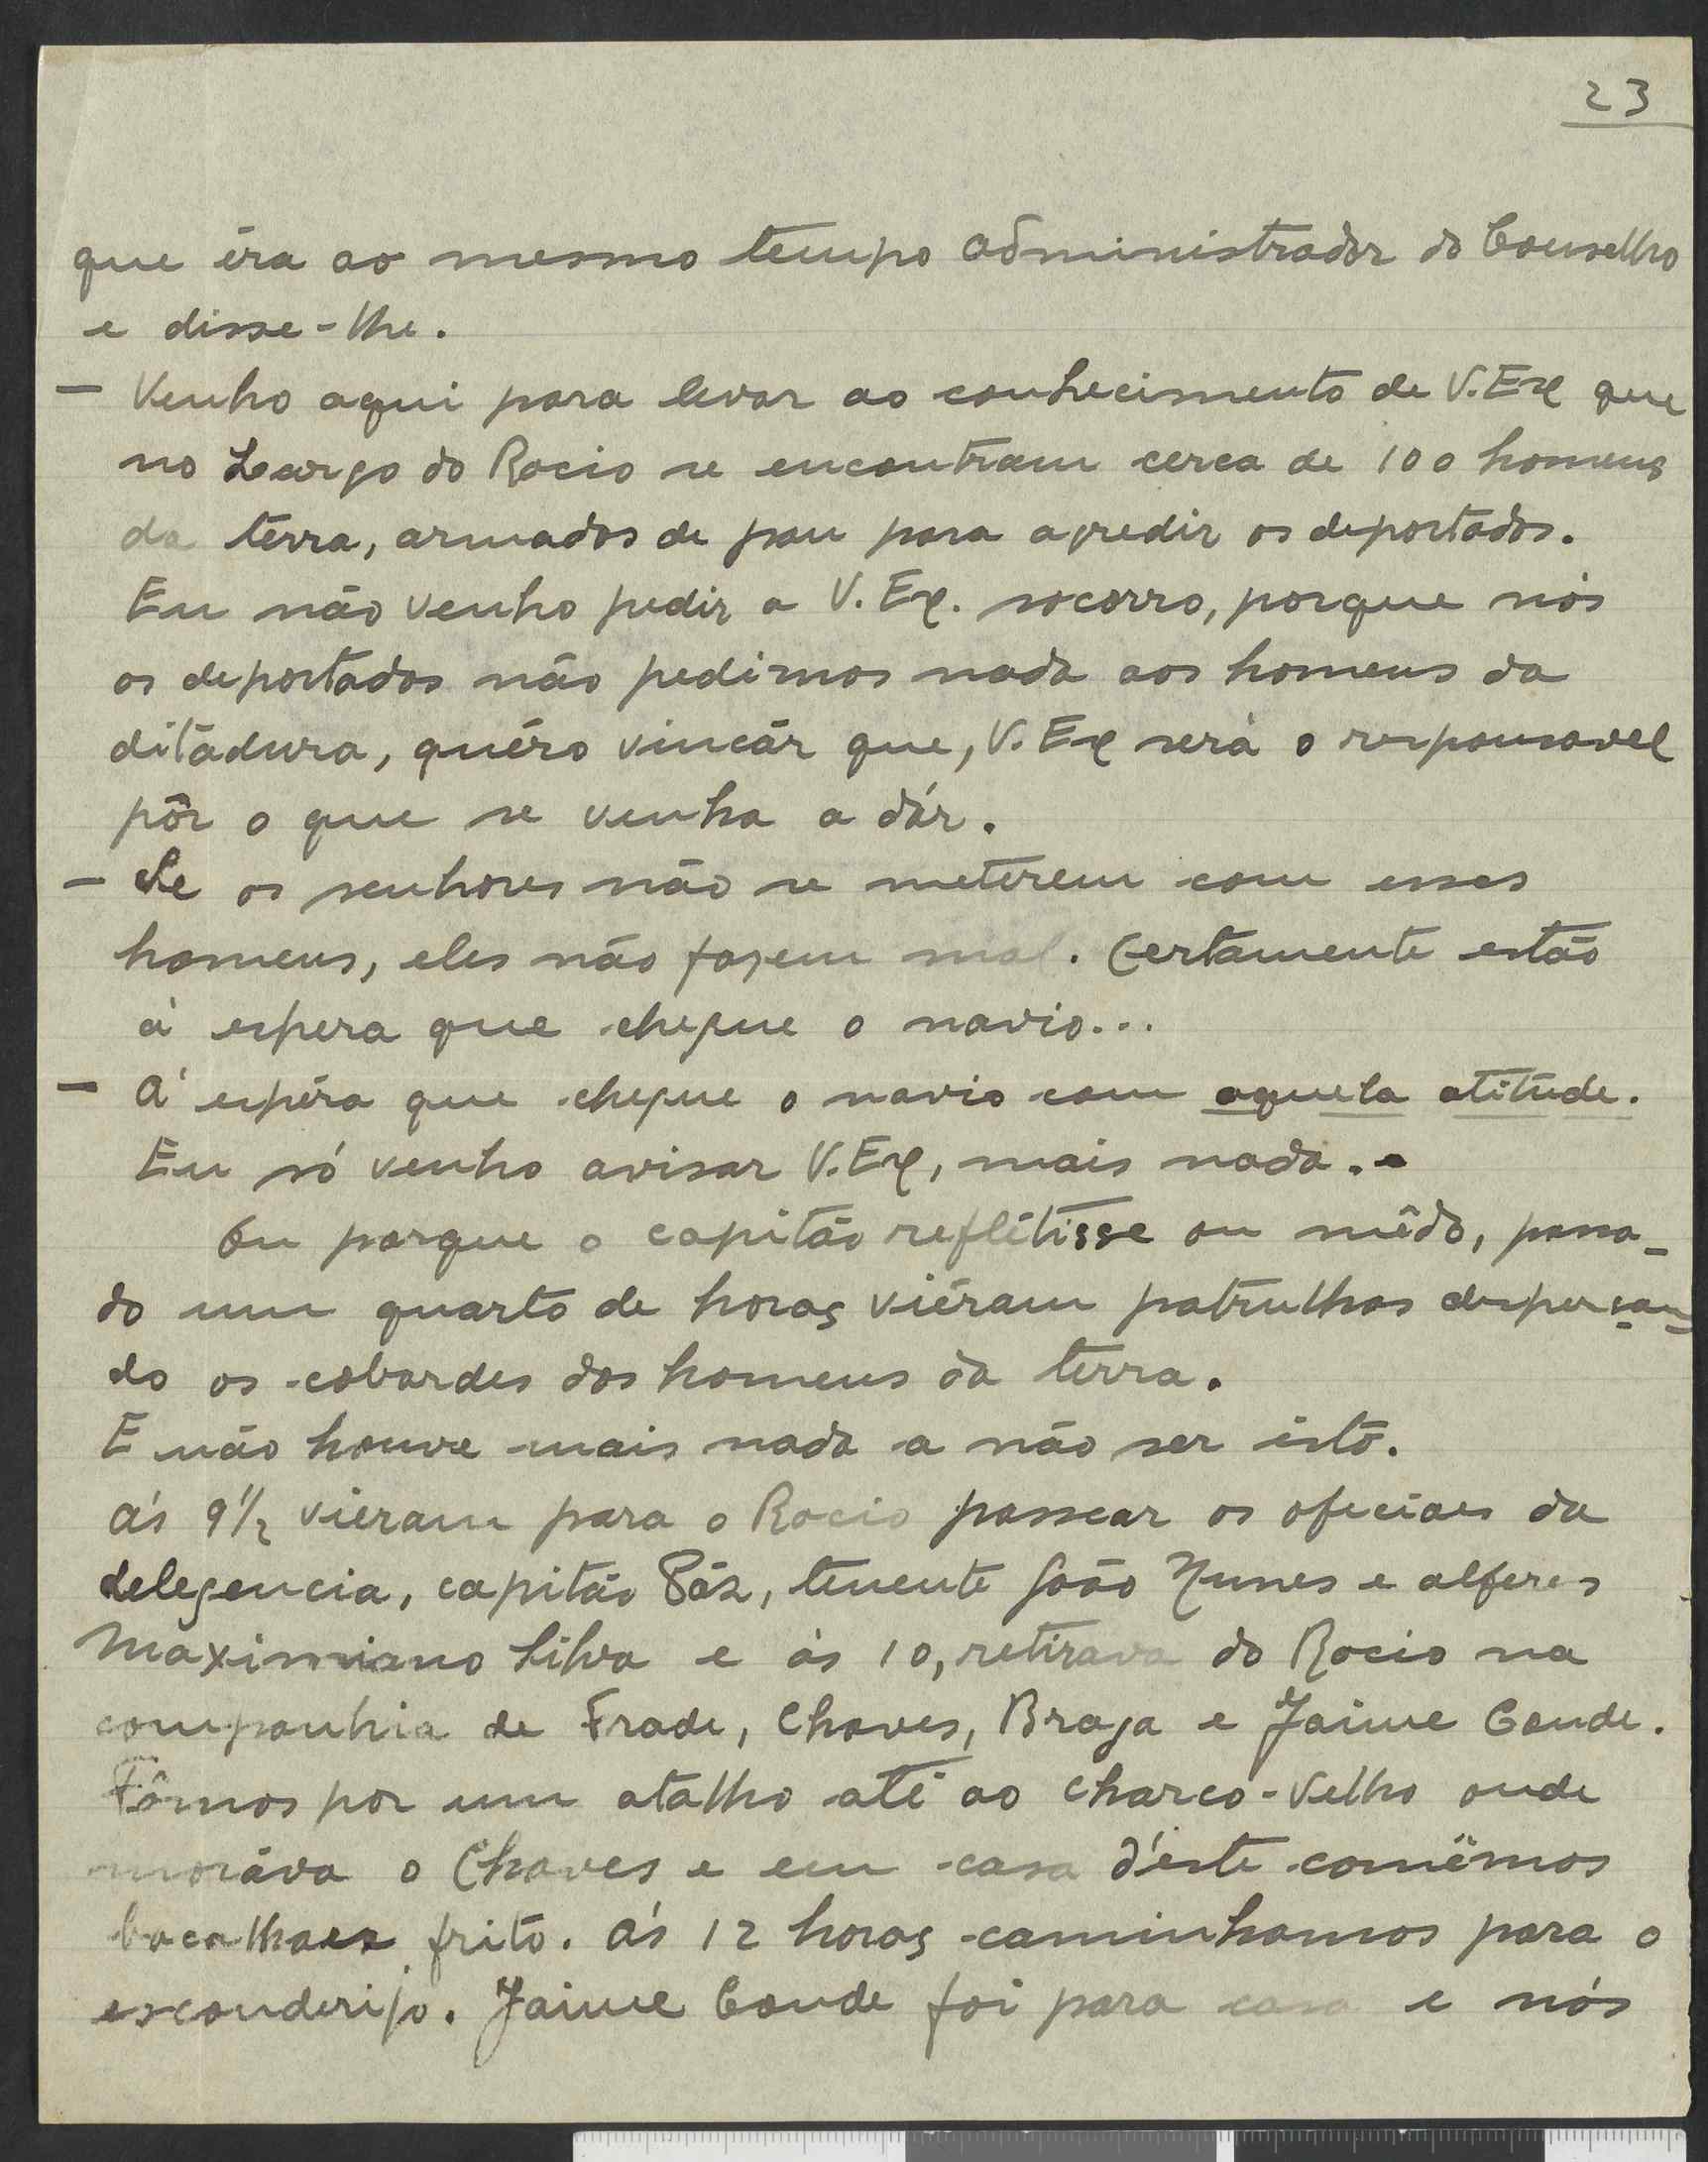 23
que éra ao mesmo tempo administrador do Conselho
e disse-lhe.
— Venho aqui para levar ao conhecimento de V.Exª que
no Largo do Rocio se encontram cerca de 100 homens
da terra, armados de pau para agredir os deportados.
Eu não venho pedir a V. Exª. socorro, porque nós
os deportados não pedimos nada aos homens da
ditadura, quéro vincár que, V. Exª será o responsavel
pôr o que se venha a dár.
— Se os senhores não se meterem com esses
homens, eles não fazem mal. Certamente estão
à espera que chegue o navio...
— Á espéra que chegue o navio com aquela atitude.
Eu só venho avisar V.Exª, mais nada.
Ou porque o capitão reflétisse ou mêdo, passa-
do um quarto de horas viéram patrulhas despersan-
do os cobardes dos homens da terra.
E não houve mais nada a não ser isto.
Ás 9 1/2 vieram para o Rocio passear os oficiaes da
delegencia, capitão Páz, tenente João Nunes e alferes
Maximiano Silva e ás 10, retirava do Rocio na
companhia de Frade, Chaves, Braga e Jaime Conde.
Fômos por um atalho até ao Charco-Velho onde
moráva o Chaves e em casa d'éste comêmos
bacalhau frito. Ás 12 horas caminhamos para o
esconderijo. Jaime Conde foi para casa e nós